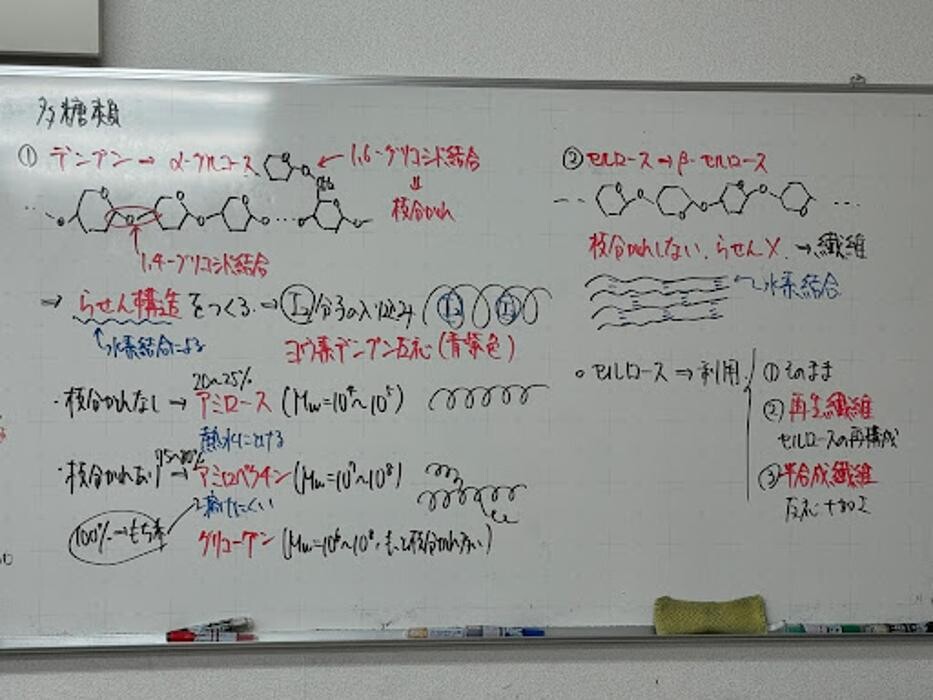 多糖類
① デンプン → α-グルコース
1,6-グリコシド結合
⇓
枝分かれ
1,4-グリコシド結合
⇒ らせん構造をつくる → I₂分子の入り込み I₂ I₂
水素結合による
ヨウ素デンプン反応(青紫色)
20~25%
・枝分かれなし → アミロース (Mw=10⁴~10⁵)
熱水にとける
75~80%
・枝分かれあり → アミロペクチン (Mw=10⁷~10⁸)
溶けにくい
100%→もち米
グリコーゲン (Mw=10⁶~10⁸, もっと枝分かれ多い)
② セルロース → β-セルロース
枝分かれしない、らせん×. → 繊維
水素結合
○ セルロース ⇒ 利用
① そのまま
② 再生繊維
セルロースの再構成
③ 半合成繊維
反応+加工